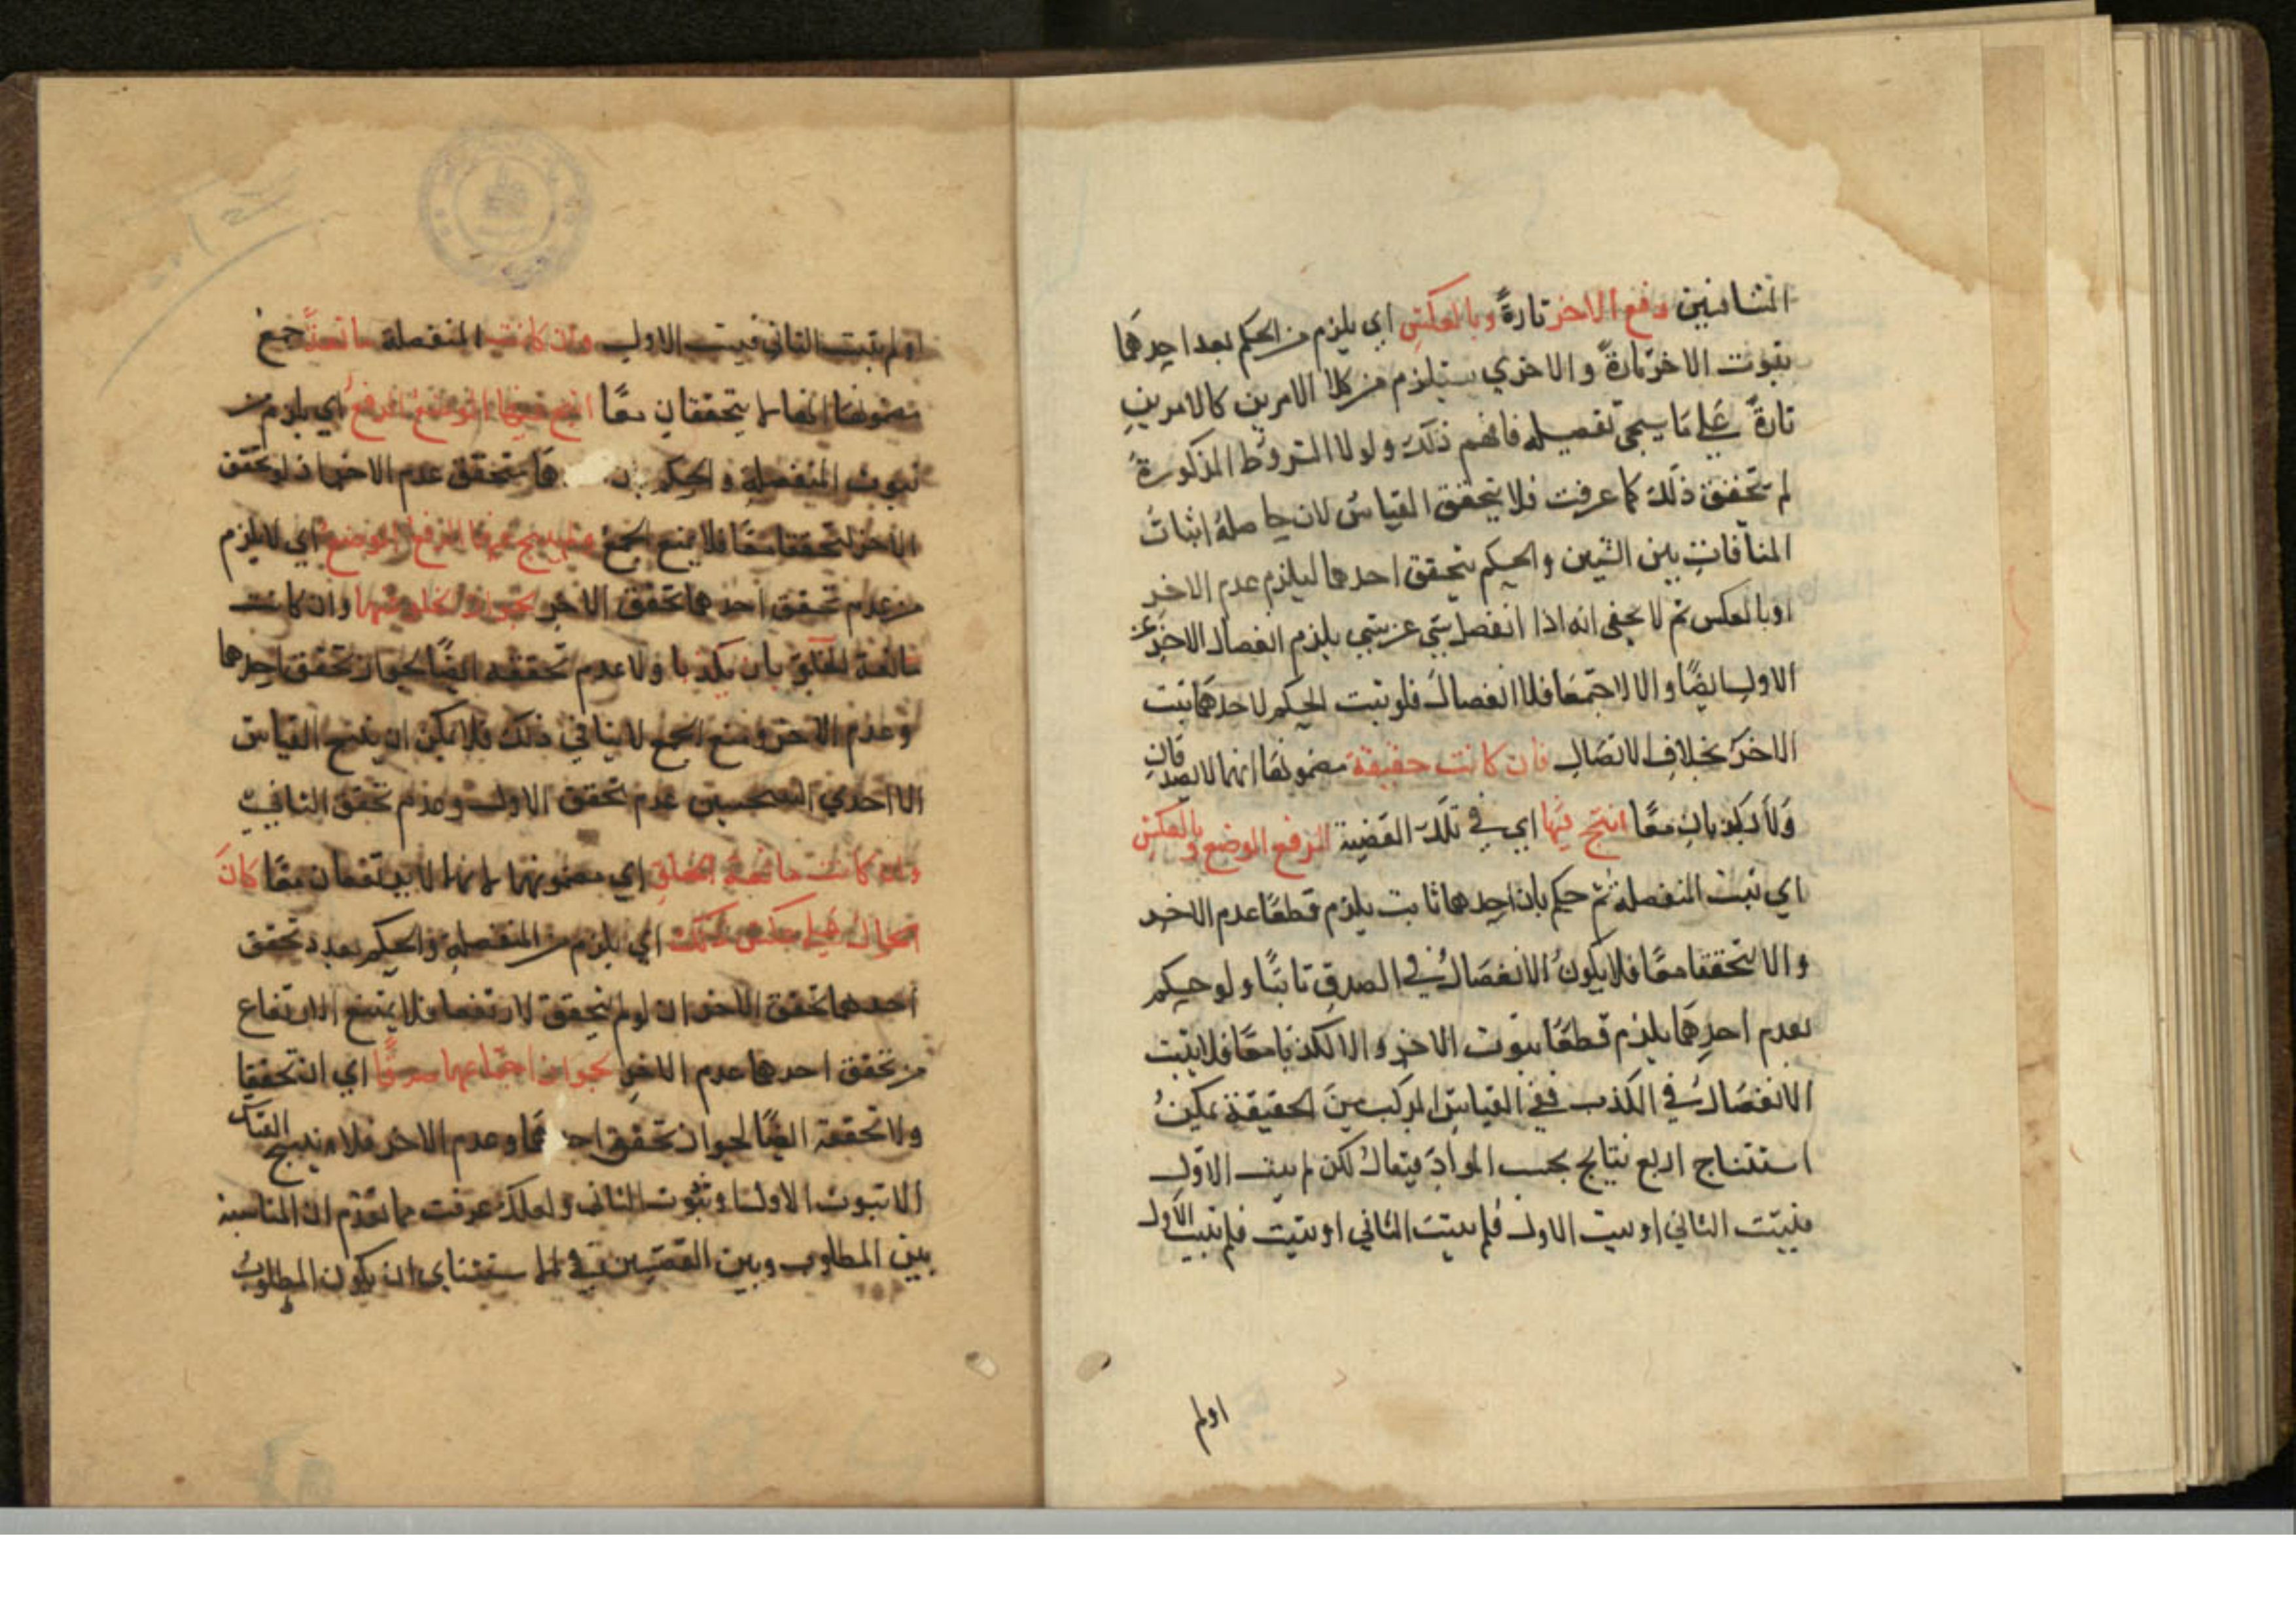 المتنافيين رفع الاخر تارةً وبالعكس اي يلزم من الحكم بعد احدهما
بثبوت الاخر تارةً والاخري يستلزم من كلا الامرين كالامرين
تارةً علي ما سيجي تفصيله فافهم ذلك ولولا الشروط المذكورة
لم يتحقق ذلك كما عرفت فلا يتحقق القياس لان حاصله اثبات
المنافات بين الشيين والحكم بتحقق احدهما ليلزم عدم الاخر
او بالعكس ثم لا يخفى انه اذا انفصل شي عن شي يلزم انفصال الاخر عن
الاول ايضًا والا لاجتمعا فلا انفصال فلو ثبت الحكم لاحدهما ثبت
الاخر بخلاف الاتصال فان كانت حقيقة مضمونها انهما لا يصدقان
ولا يكذبان معًا انتج فيها اي في تلك القضية الرفع الوضع وبالعكس
اي ثبت المنفصلة ثم حكم بان احدهما ثابت يلزم قطعًا عدم الاخر
والا لتحققا معًا فلا يكون الانفصال في الصدق ثابتًا ولو حكم
بعدم احدهما يلزم قطعًا ثبوت الاخر والا لكذبا معًا فلا يثبت
الانفصال في الكذب ففي القياس المركب من الحقيقة يمكن
استنتاج اربع نتايج بحسب المواد فيقال لكن لم يثبت الاول
فيثبت الثاني او يثبت الاول فلم يثبت الثاني او يثبت فلم يثبت الاول
اولم
اولم يثبت الثاني فيثبت الاول وان كانت المنفصلة مانعة جمع
مضمونها انهما لا يتحققان معًا انتج فيها الوضع الرفع اي يلزم من
ثبوت المنفصلة والحكم هما يتحقق عدم الاخر اذ لو تحقق
الاخر لتحققا معًا فلا يمنع الجمع ولم ينتج فيها الرفع الوضع اي لا يلزم
من عدم تحقق احدهما تحقق الاخر لجواز الخلو عنهما وان كانت
مانعة الخلو بان يكذبا ولا عدم تحققه ايضًا لجواز تحقق احدهما
وعدم الاخر ومنع الجمع لا ينافي ذلك فلا يمكن ان ينتج القياس
الا احدي عدم تحقق الاول وعدم تحقق الثاني
وان كانت مانعة الخلو اي مضمونها انهما لا يرتفعان معًا كان
الحال علي عكس ذلك اي يلزم من المنفصلة والحكم بعدم تحقق
احدهما تحقق الاخر اذ لو لم يتحقق لارتفعا فلا يمتنع الارتفاع
من تحقق احدهما عدم الاخر لجواز اجتماعهما صدقًا اي ان تحققا
ولا تحققه ايضًا لجواز تحقق احدهما وعدم الاخر فلا ينتج القياس
الا ثبوت الاول او ثبوت الثاني ولعلك عرفت مما تقدم ان المناسبة
بين المطلوب وبين القضيتين في الاستثناي ان يكون المطلوب